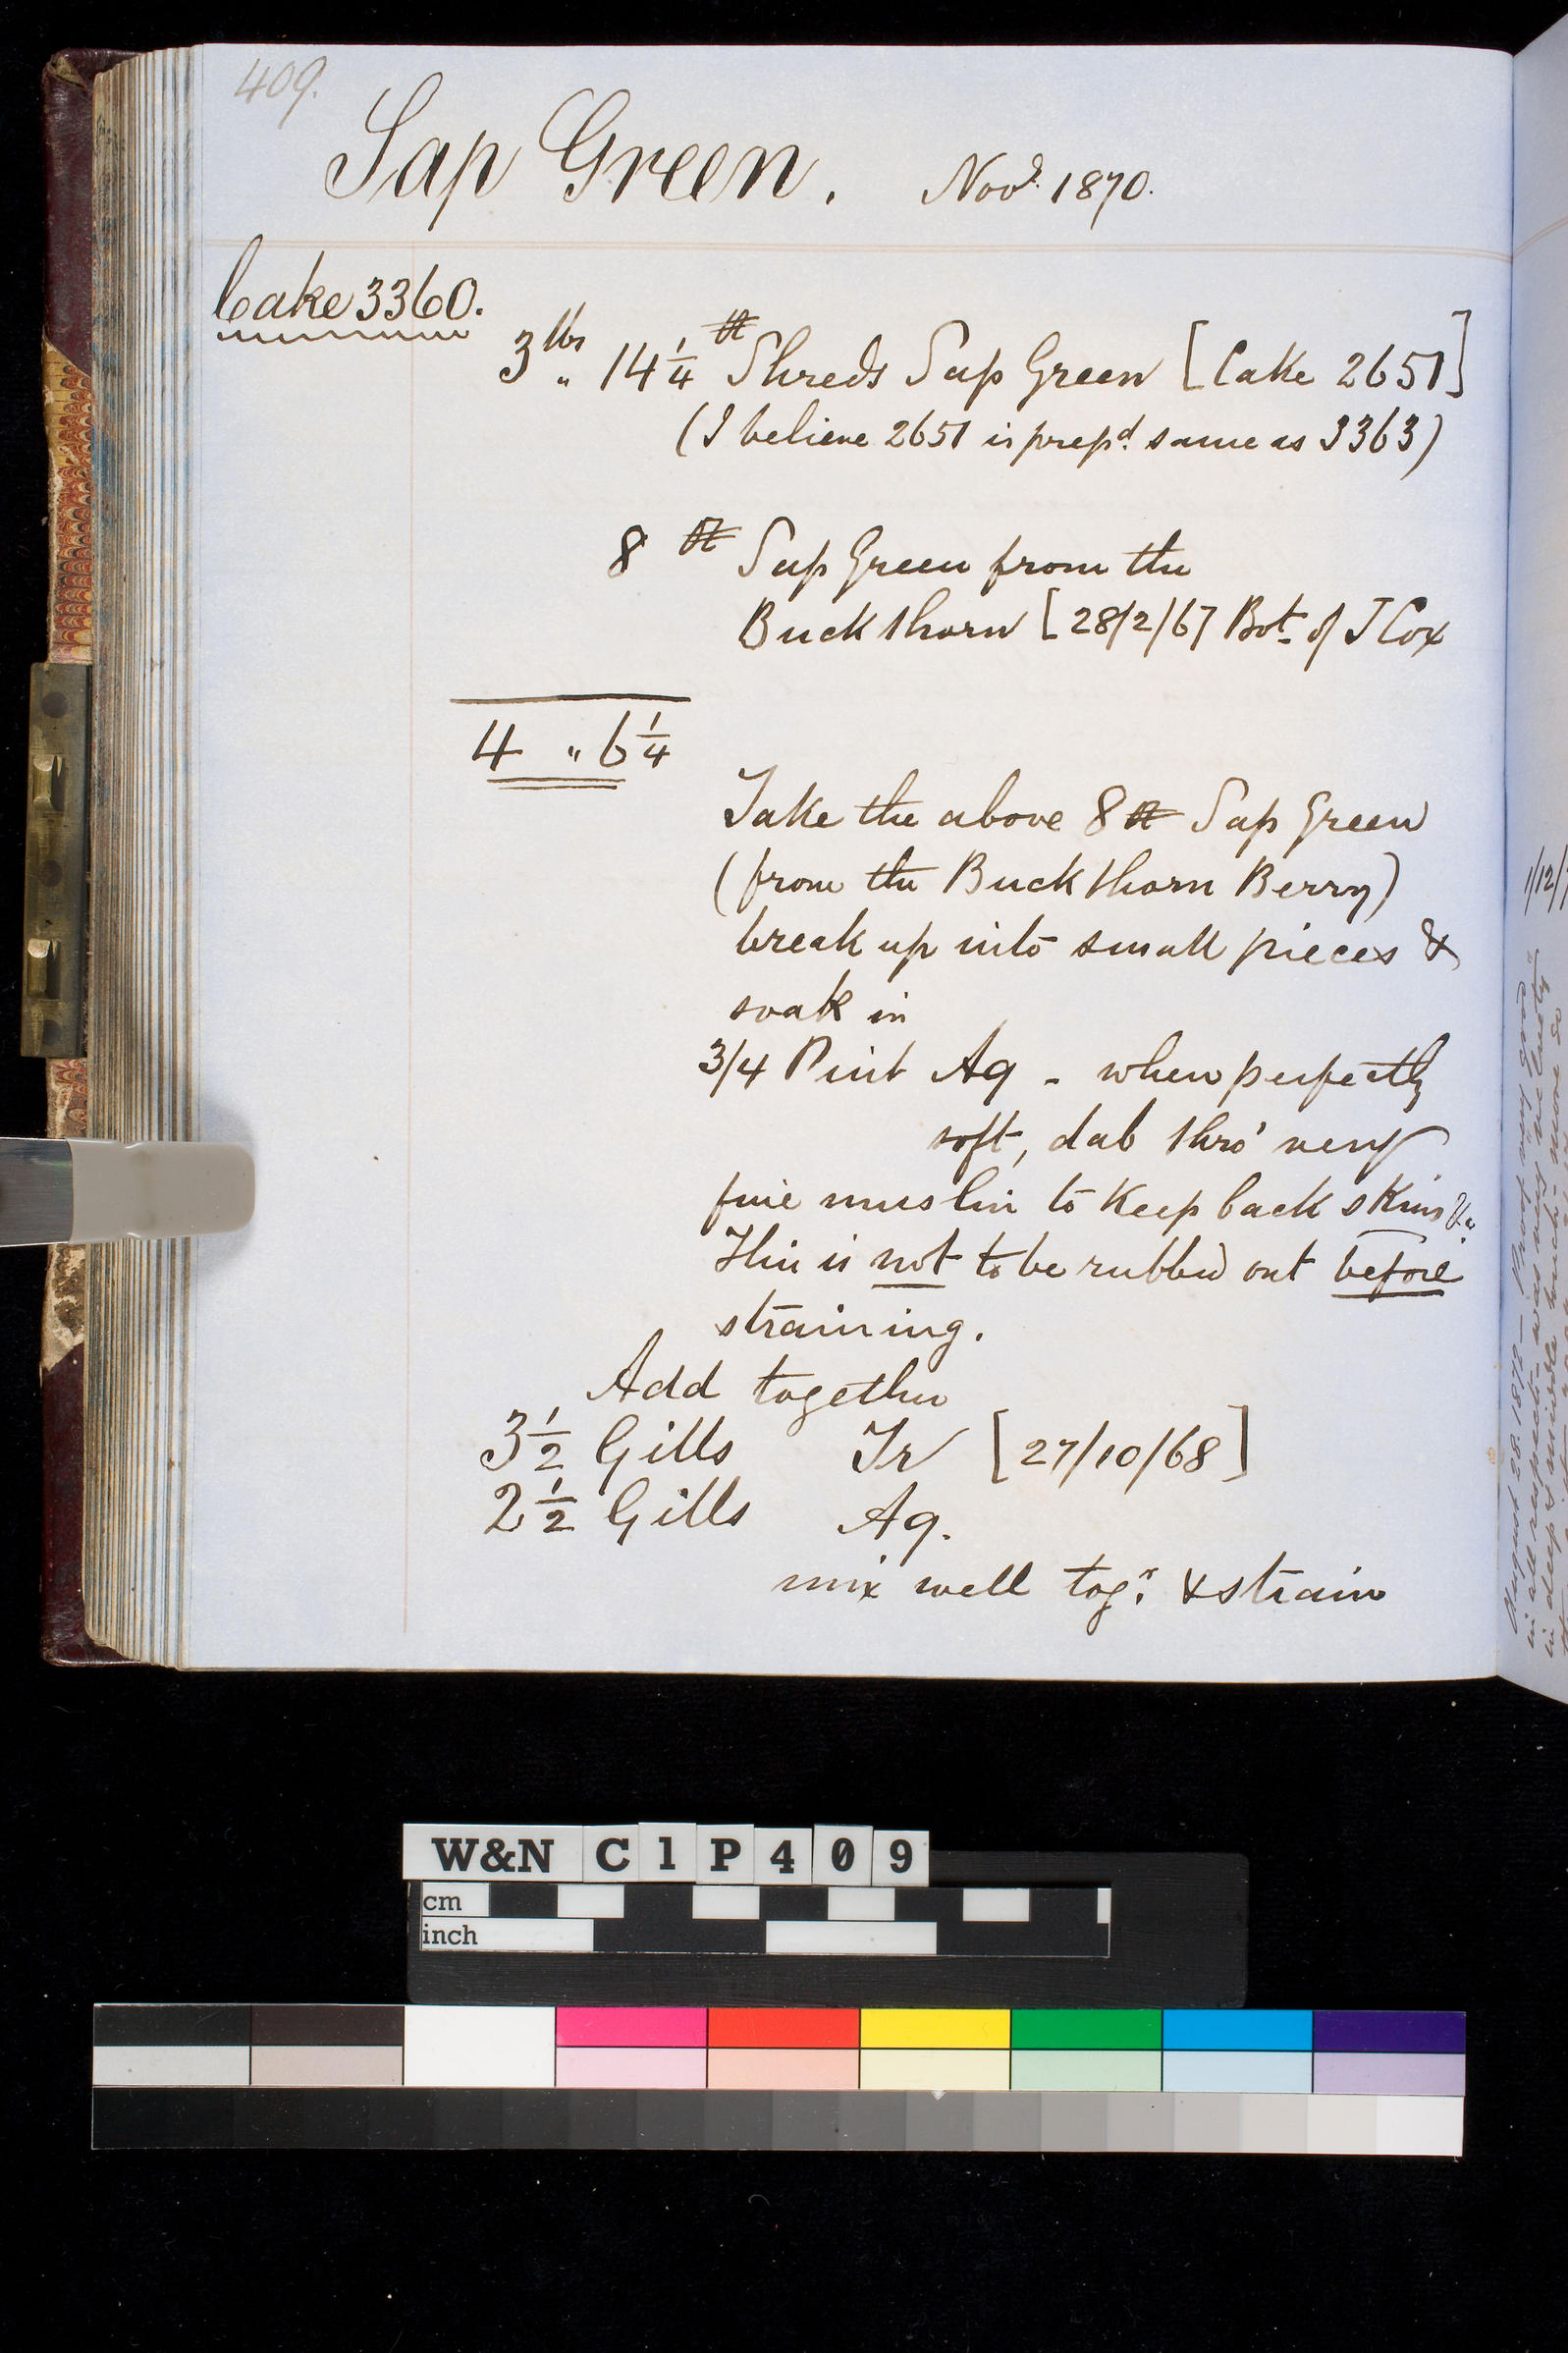 409.
Sap Green. Novr. 1870.
Cake 3360.
3 lbs „ 14 1/4 Shreds Sap Green [Cake 2651]
(I believe 2651 is prepd. same as 3363)
8 Sap Green from the
Buckthorn [28/2/67 Bot. of J Cox
4 „ 6 1/4
Take the above 8 Sap Green
(from the Buckthorn Berry)
break up into small pieces &
soak in
3/4 Pint Aq - when perfectly
soft, dab thro' very
fine muslin to keep back skins &c.
This is not to be rubbed out before
straining.
Add together
3 1/2 Gills Tr [27/10/68]
2 1/2 Gills Aq.
mix well togr. & strain
1/12/7
August 28. 1872 -
W&N C1P409
cm
inch